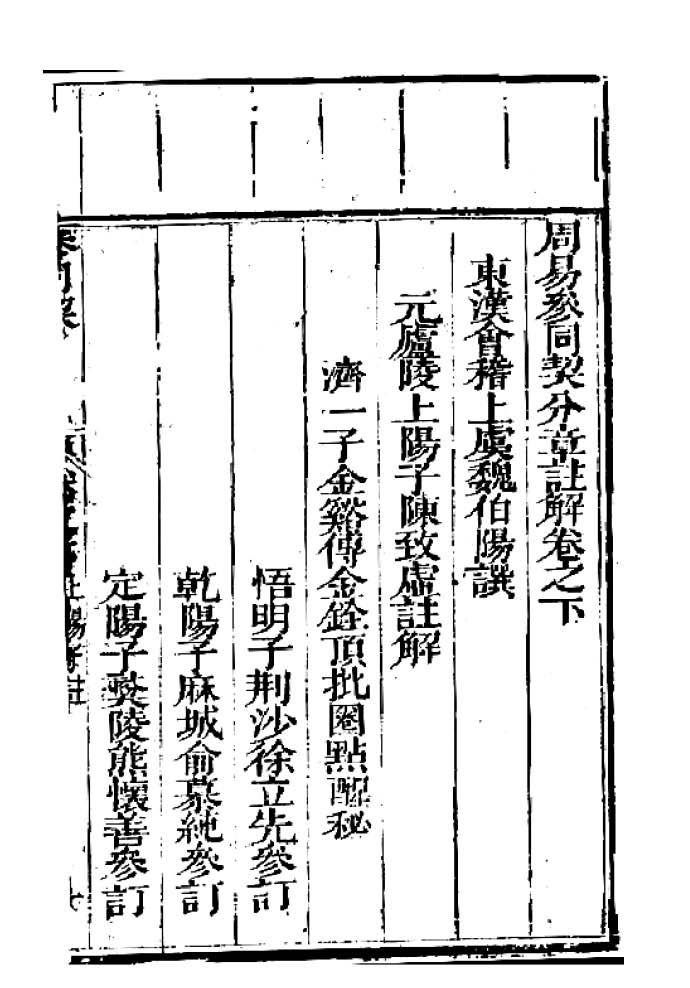 周易參同契分章註解卷之下
東漢會稽上虞魏伯陽譔
元廬陵上陽子陳致虛註解
濟一子金谿傅金銓頂批圈點醒秘
悟明子荆沙徐立先參訂
乾陽子麻城俞慕純參訂
定陽子夷陵熊懷善參訂
參同契